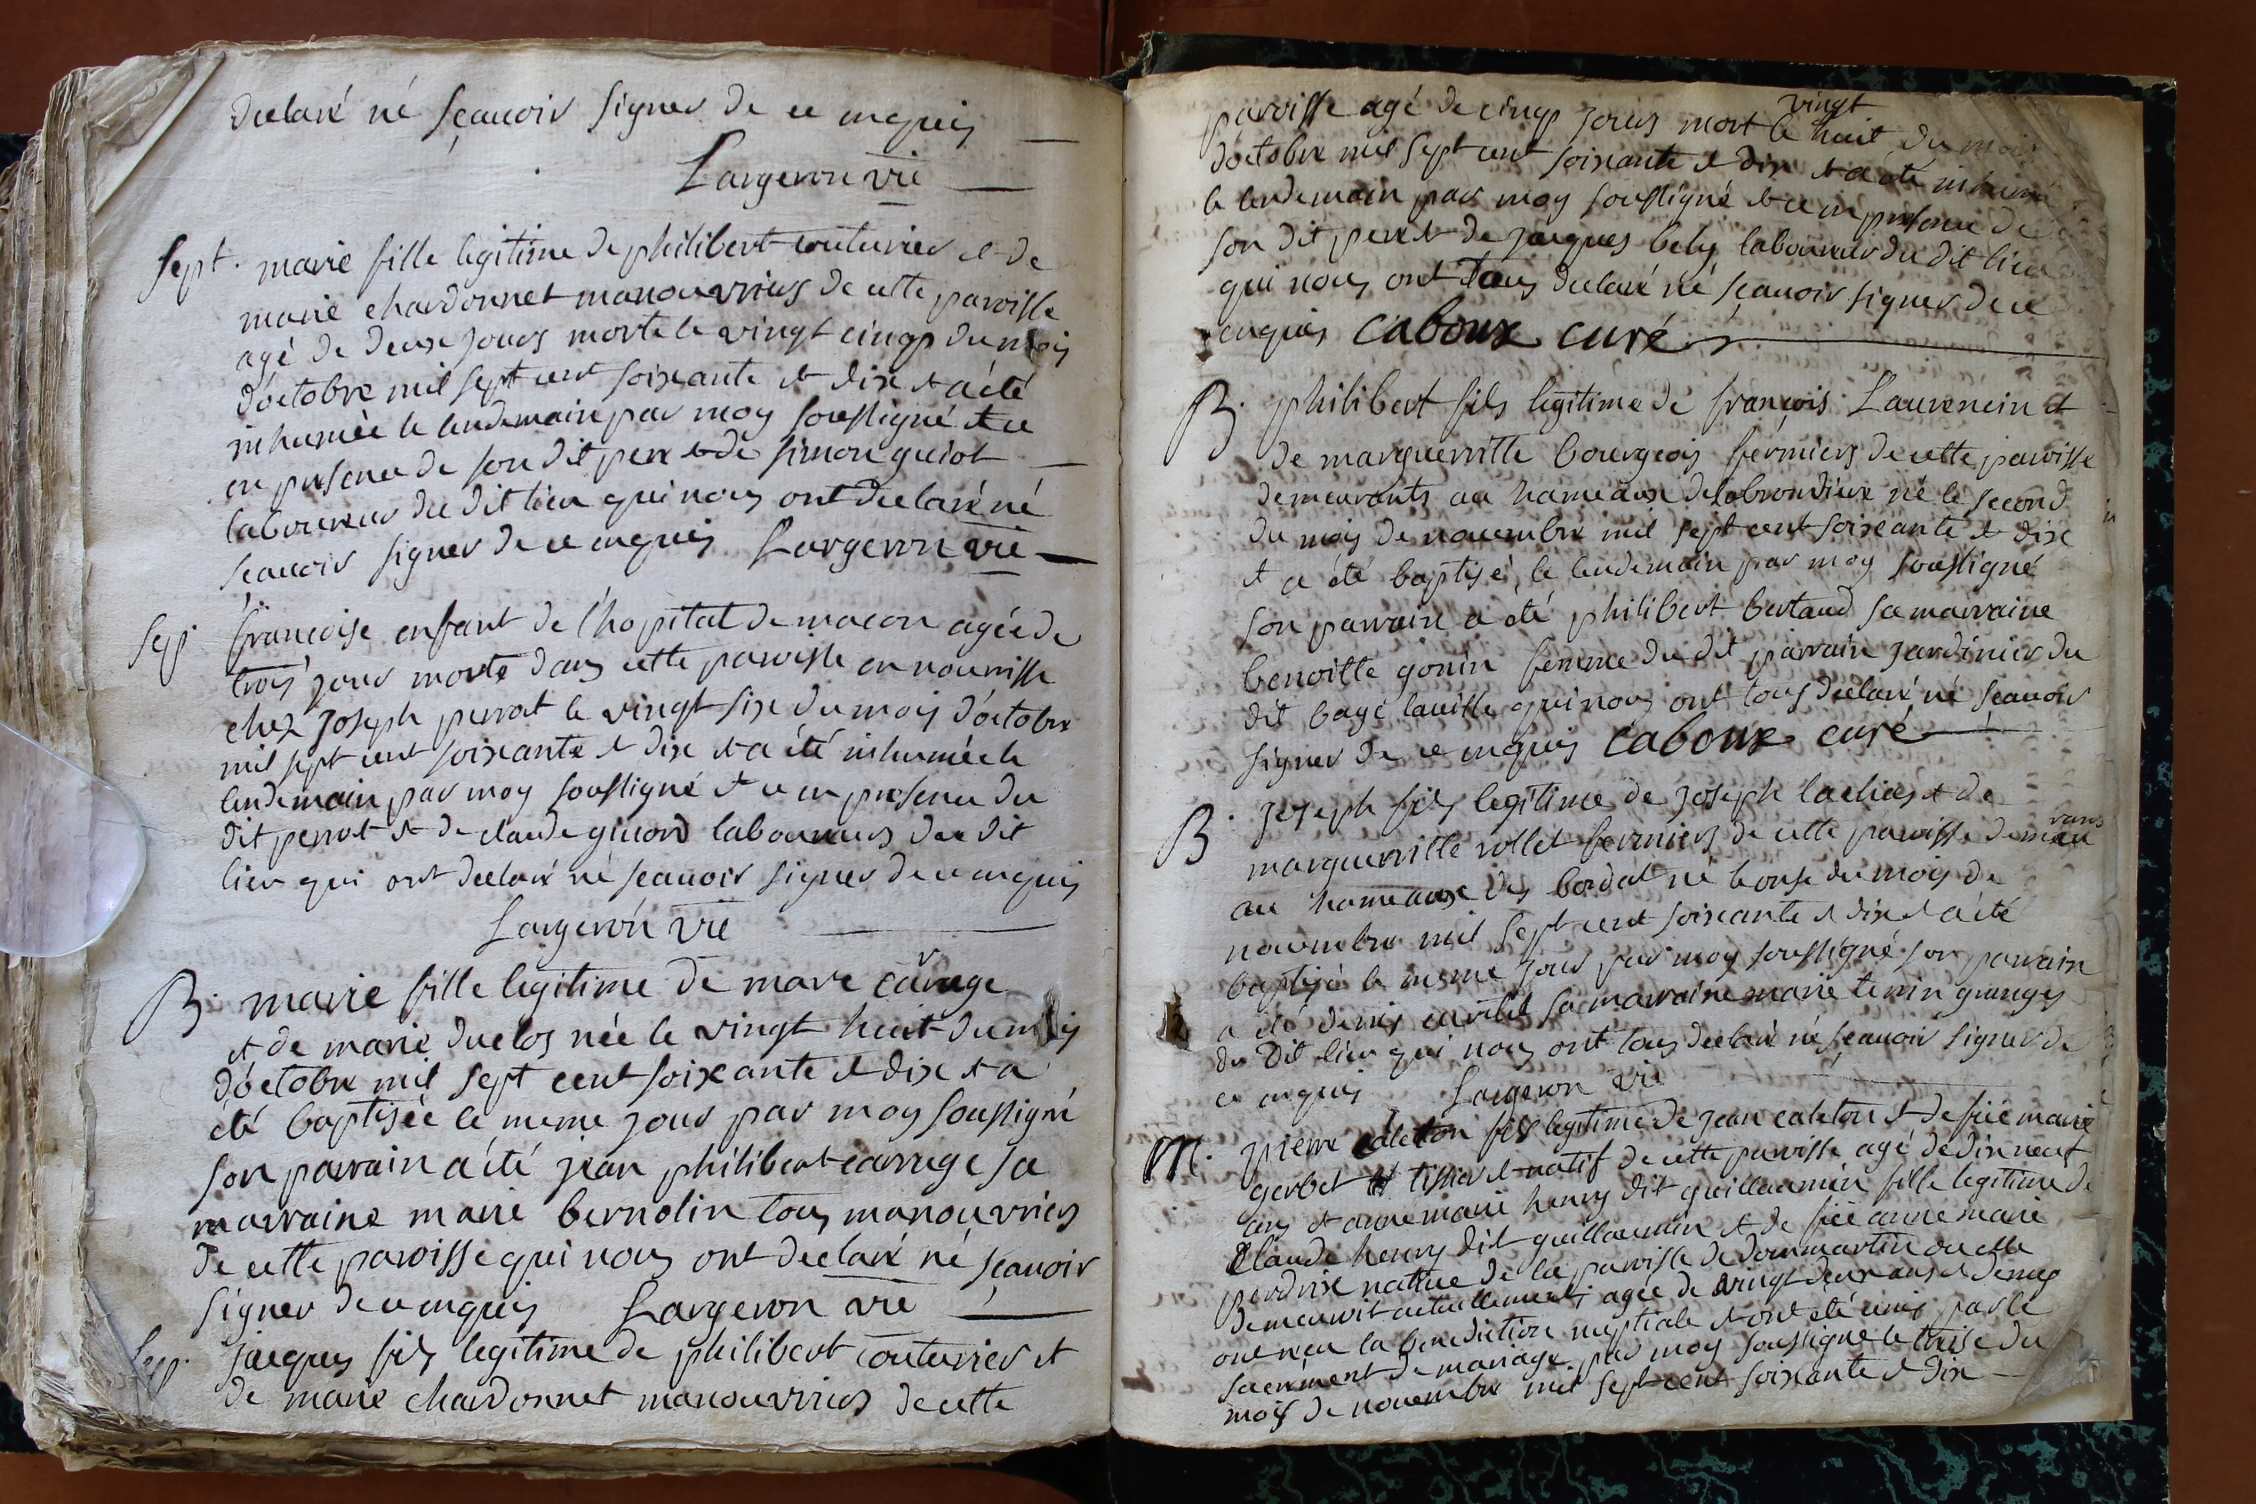 declaré né sçauoir signer de ce enquis
Largeron vic
Sept. marie fille legitime de philibert couturier et de
marie chardonnet manouvriers de cette paroisse
agé de deux jours morte le vingt cinq du mois
d'octobre mil sept cent soixante et dix et a été
inhumée le lendemain par moy soussigné et ce
en presence de son dit pere et de simon guiot
laboureur du dit lieu qui nous ont declaré né
sçauoir signer de ce enquis Largeron vic
Sep. françoise enfant de l'hopital de macon agée de
trois jour morte dans cette paroisse en nourrisse
chez joseph perrot le vingt six du mois d'octobre
mil sept cent soixante et dix et a été inhumée le
lendemain par moy soussigné et ce en presence du
dit perrot et de claude guiord laboureurs du dit
lieu qui ont declaré né sçauoir signer de ce enquis
Largeron vic
B. marie fille legitime de marc carruge
et de marie duclos née le vingt huit du mois
d'octobre mil sept cent soixante et dix et a
été baptisée le meme jour par moy soussigné
son parrain a été jean philibert carruge sa
marraine marie bernolin tous manouvriers
de cette paroisse qui nous ont declaré né sçauoir
signer de ce enquis Largeron vic
Sep. jacques fils legitime de philibert couturier et
de marie chardonnet manouvriers de cette
paroisse agé de cinq jours mort le vingt huit du mois
d'octobre mil sept cent soixante et dix et a été inhumé
le lendemain par moy soussigné et ce en presence de
son dit pere et de jacques bely laboureur du dit lieu
qui nous ont tous declaré né sçauoir signer de ce
enquis caboux curé
B. philibert fils legitime de françois Laurencin et
de marguerritte bourgeois fermiers de cette paroisse
demeurants au hameaux de né le second
du mois de nouembre mil sept cent soixante et dix
et a été baptisé le lendemain par moy soussigné
son parrain a été philibert bertaud sa marraine
benoitte gonin femme du dit parrain jardinier du
dit bagé lauille qui nous ont tous declaré né sçauoir
signer de ce enquis caboux curé
B. joseph fils legitime de joseph et de
marguerritte rollet fermiers de cette paroisse demeurans
au hameaux des bordat né le onse du mois de
nouembre mil sept cent soixante et dix et a été
baptisé le meme jour par moy soussigné son parrain
a été denis sa marraine marie granges
du dit lieu qui nous ont tous declaré né sçauoir signer de
ce enquis Largeron vic
M. pierre caleton fils legitime de jean caleton et de feüe marie
gerbet tissier et natif de cette paroisse agé de dix neuf
ans et anne marie henry dit guillaumin fille legitime de
Claude henry dit guillaumin et de feüe anne marie
perdrix natiue de la paroisse de dommartin ou elle
demeuroit actuellement agée de vingt deux ans et demy
ont reçu la benediction nuptiale et ont été unis par le
sacrement de mariage par moy soussigné le treise du
mois de nouembre mil sept cent soixante et dix